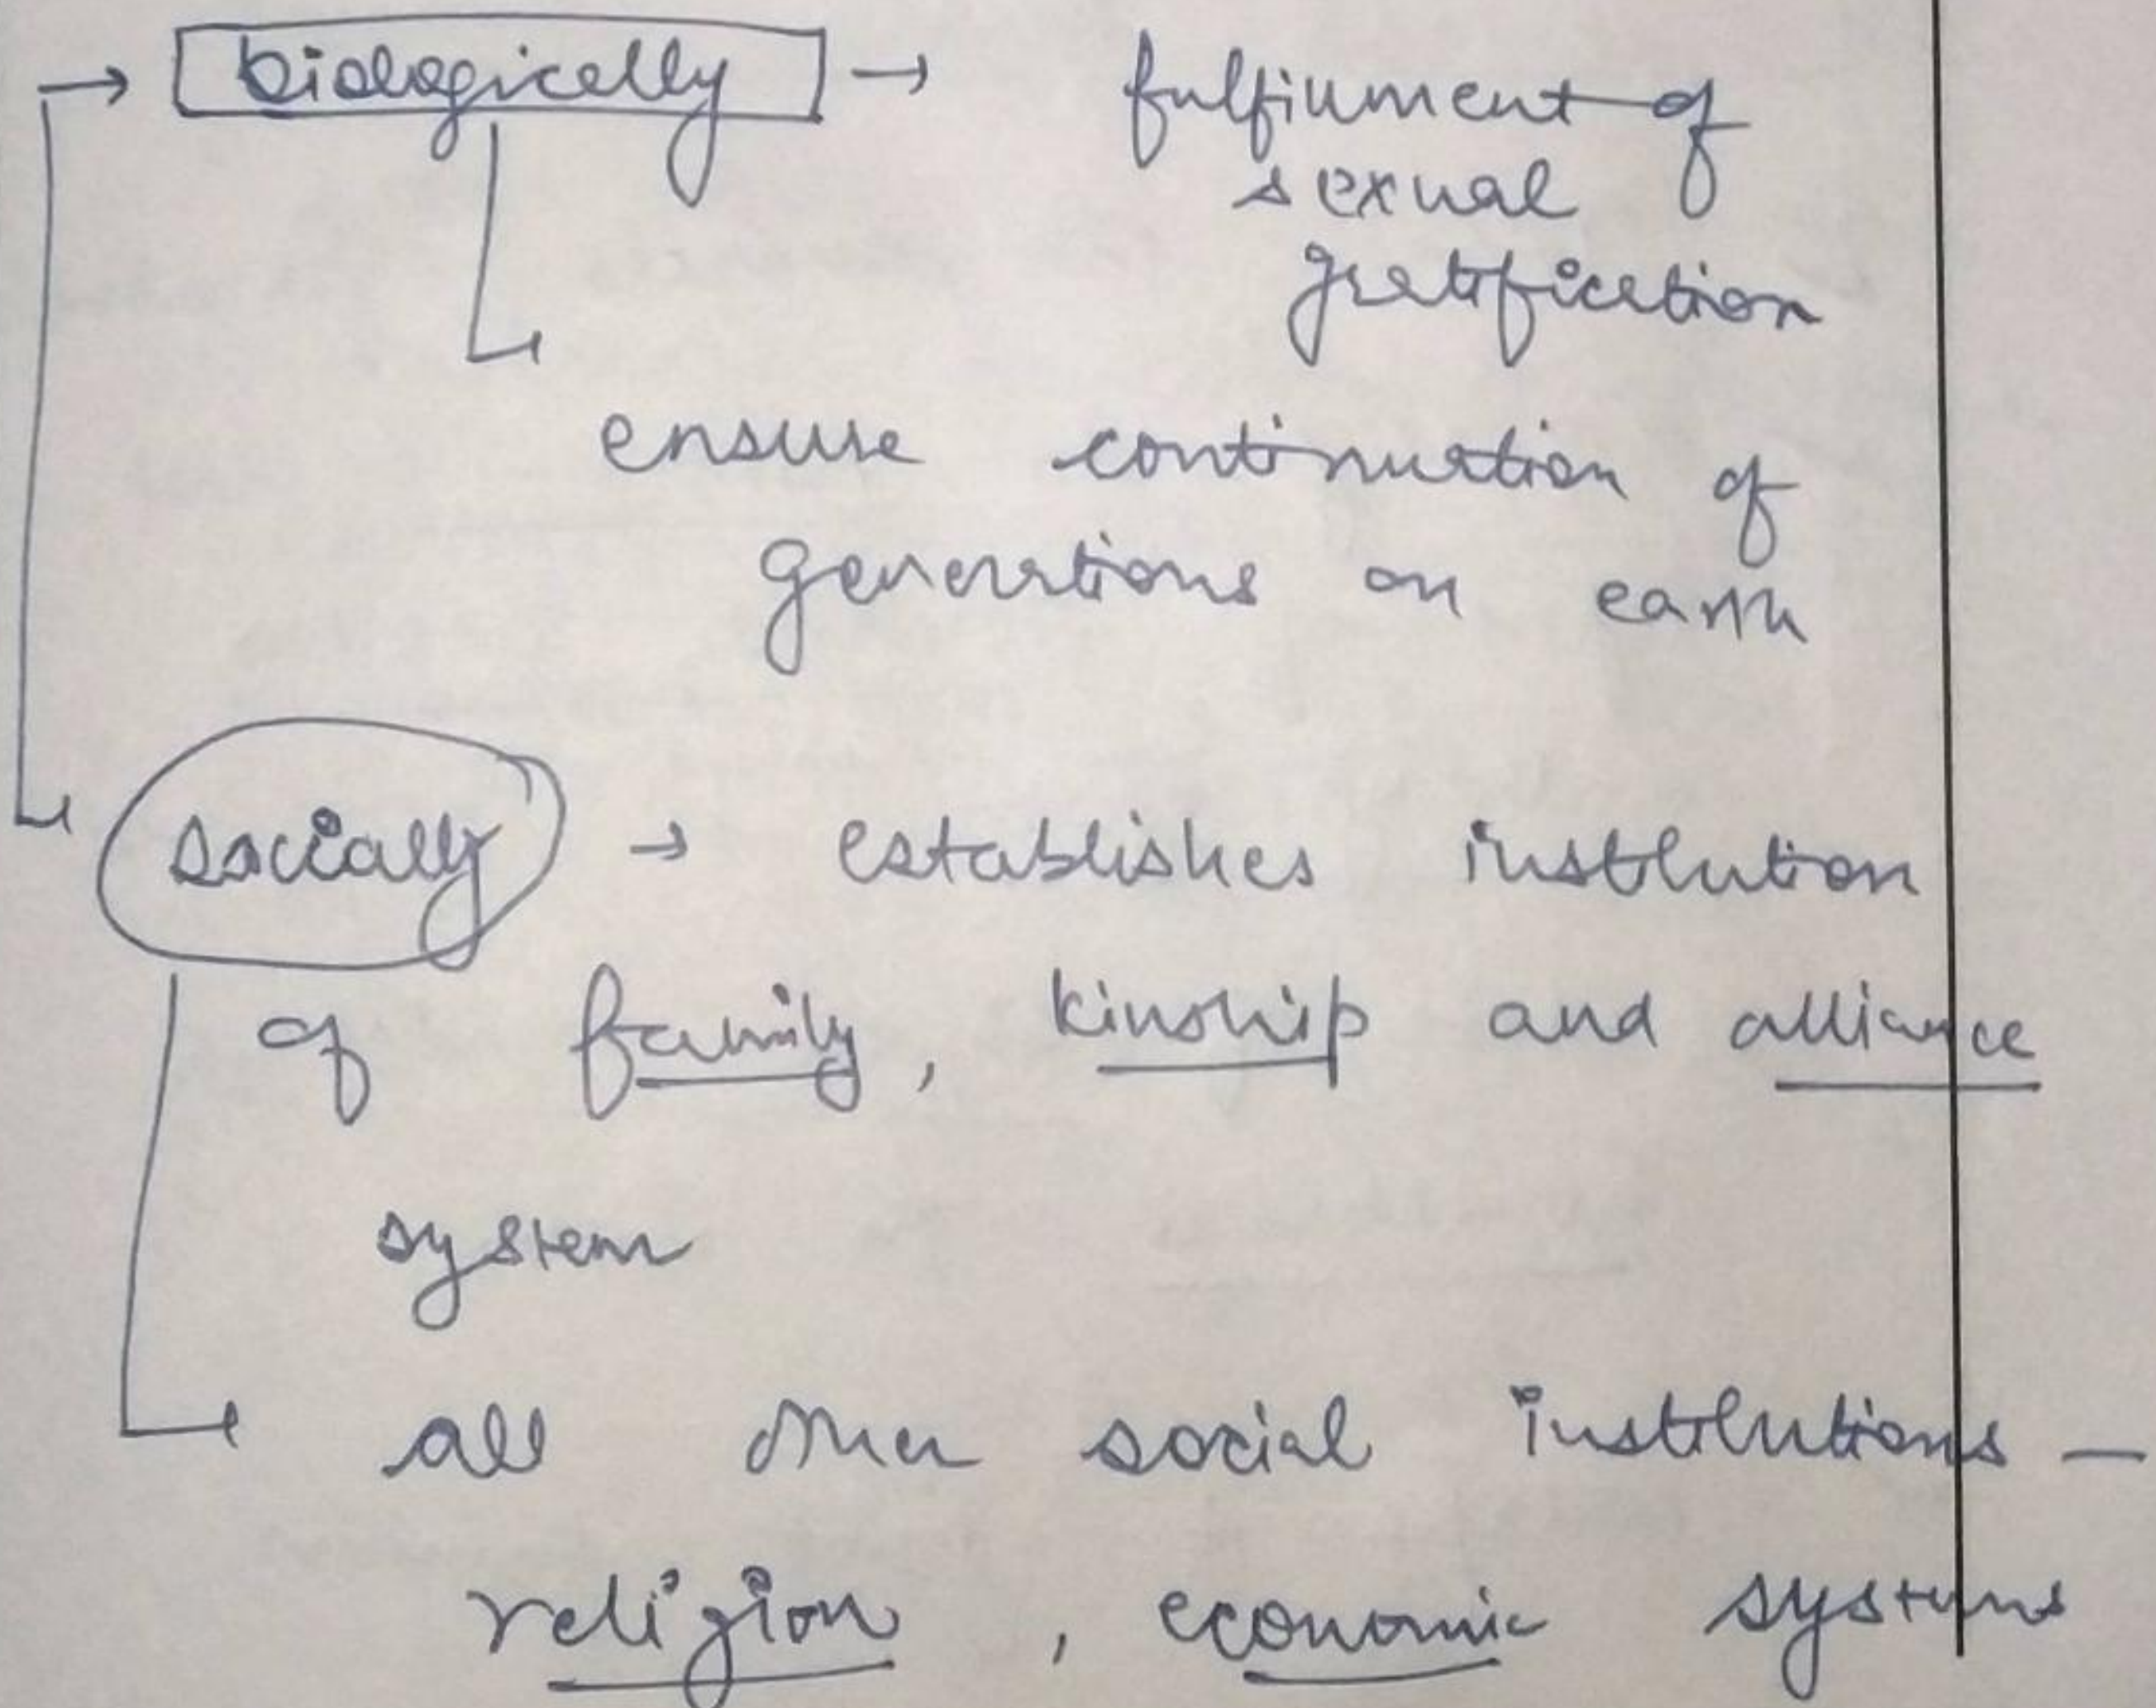 → biologically → fulfillment of
sexual
gratification
ensure continuation of
generations on earth
socially → establishes institution
of family, kinship and alliance
system
all other social institutions —
religion, economic systems